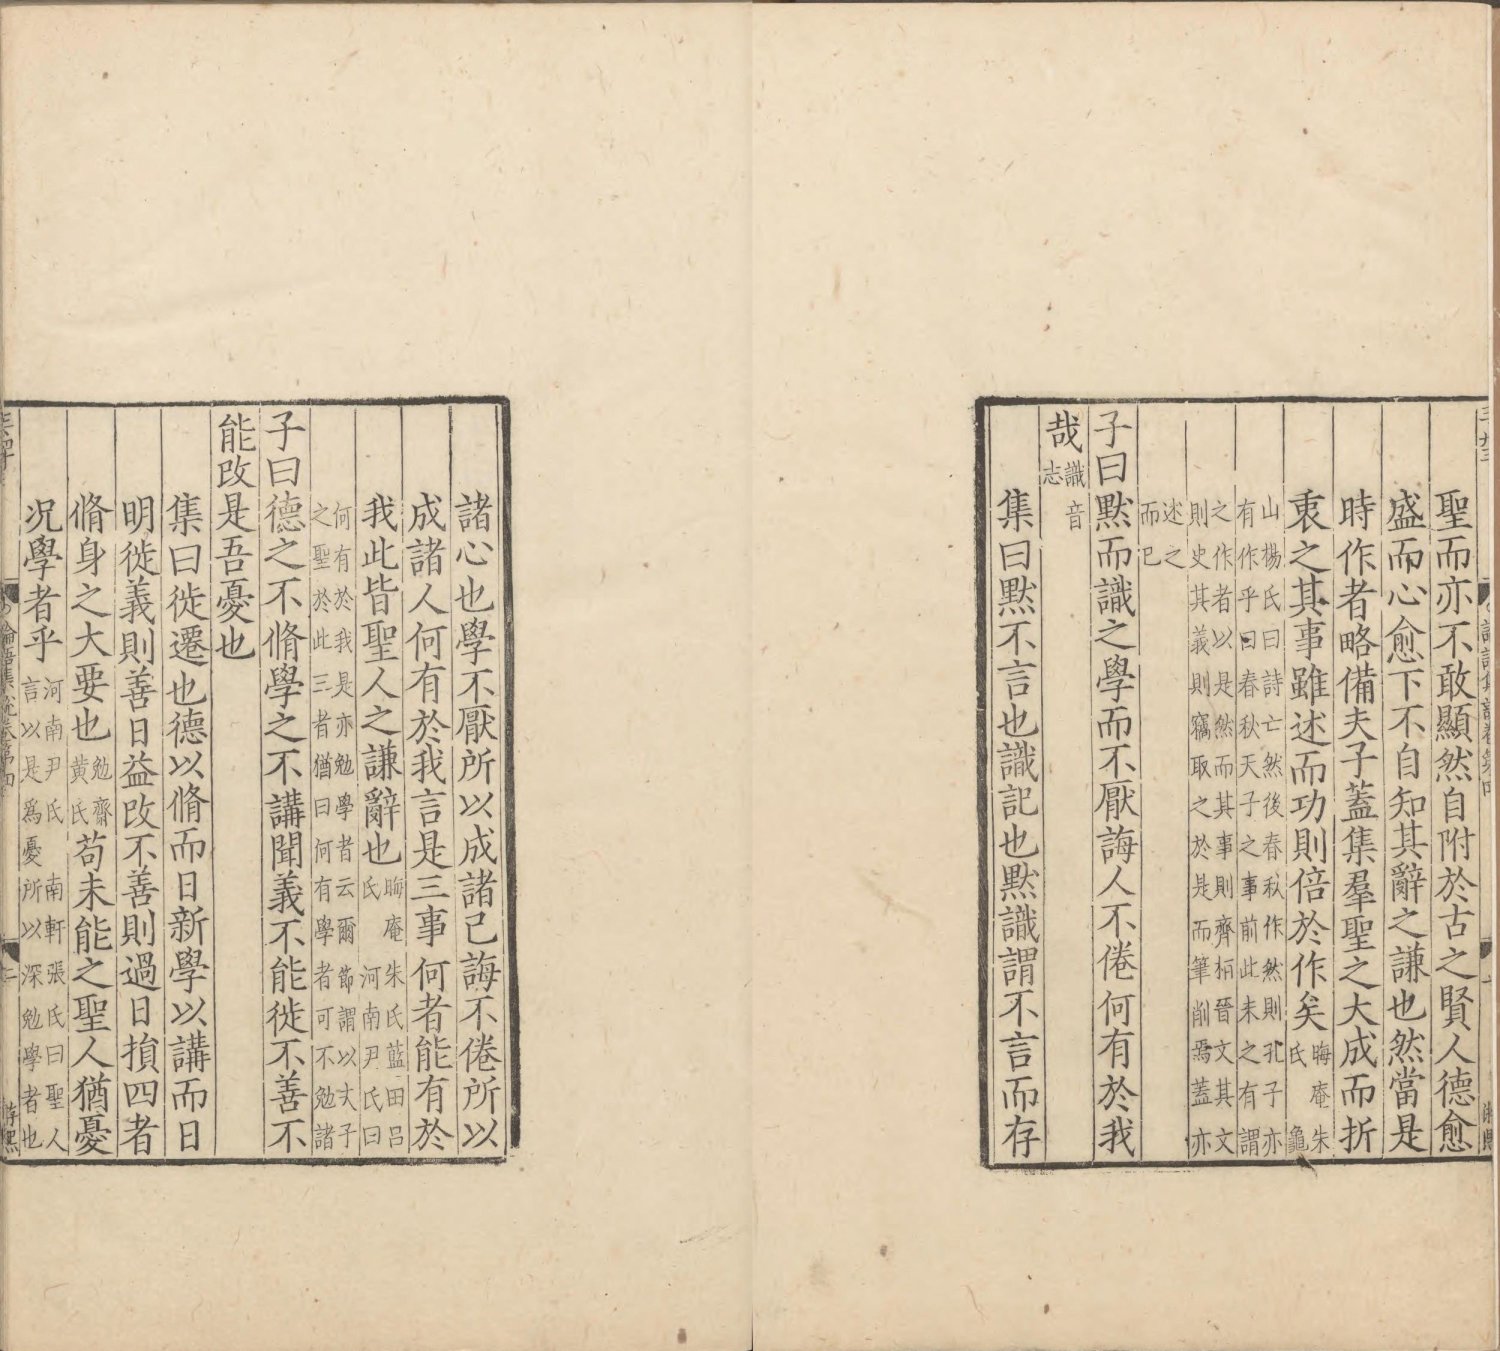 聖而亦不敢顯然自附於古之賢人德愈
盛而心愈下不自知其辭之謙也然當是
時作者略備夫子蓋集羣聖之大成而折
衷之其事雖述而功則倍於作矣晦庵朱氏
龜山楊氏曰詩亡然後春秋作然則孔子亦
有作乎曰春秋天子之事前此未之有謂
之作者以是然而其事則齊桓晉文其文
則史其義則竊取之於是而筆削焉蓋亦
述之
而已
子曰默而識之學而不厭誨人不倦何有於我
哉識音志
集曰默不言也識記也默識謂不言而存
諸心也學不厭所以成諸己誨不倦所以
成諸人何有於我言是三事何者能有於
我此皆聖人之謙辭也晦庵朱氏 藍田呂氏 河南尹氏曰
何有於我是亦勉學者云爾節謂以丈子
之聖於此三者猶曰何有學者可不勉諸
子曰德之不脩學之不講聞義不能徙不善不
能改是吾憂也
集曰徙遷也德以脩而日新學以講而日
明徙義則善日益改不善則過日損四者
脩身之大要也勉齋黃氏苟未能之聖人猶憂
况學者乎河南尹氏 南軒張氏曰聖人
言以是爲憂所以深勉學者也
論語集說卷第四
二